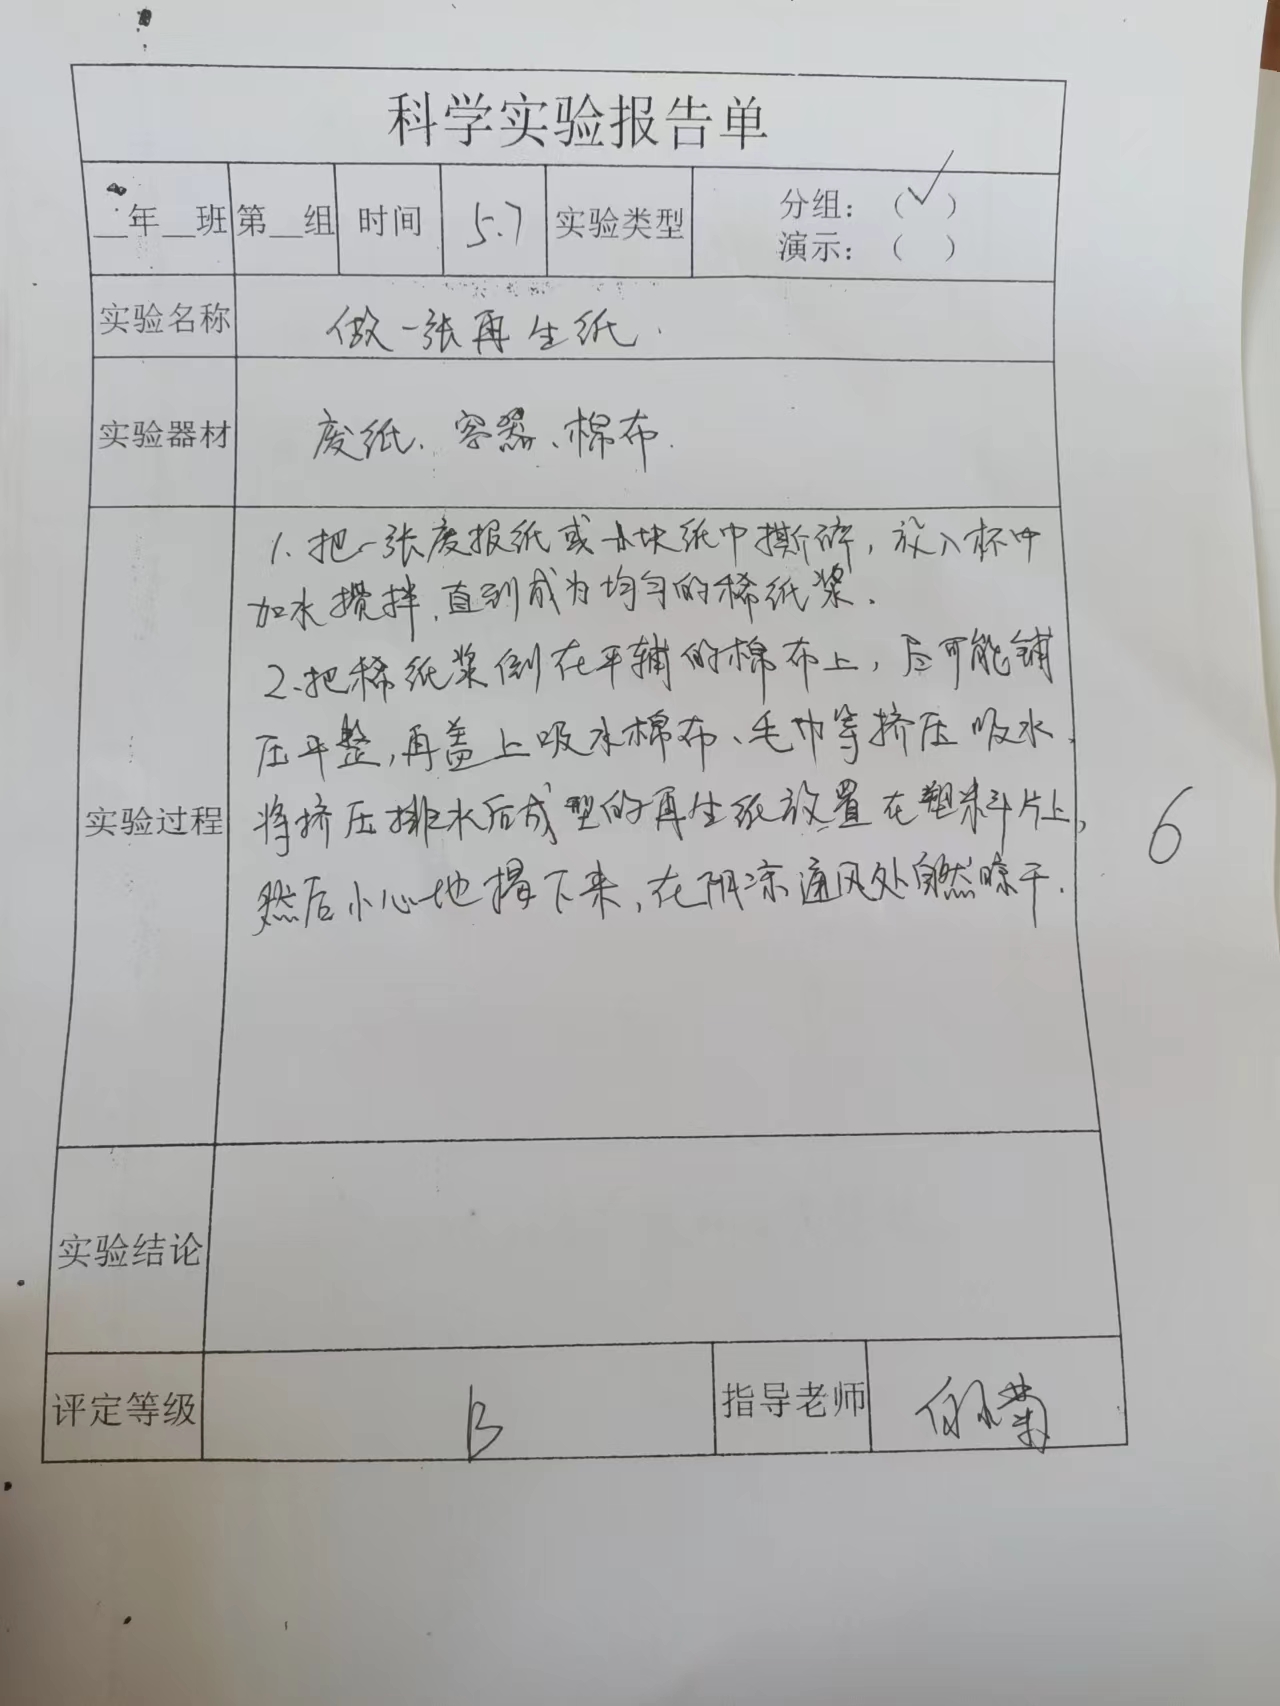 科学实验报告单
__年__班 第__组 时间 5.7 实验类型 分组：（√）
演示：（ ）
实验名称 做一张再生纸.
实验器材 废纸、容器、棉布.
1、把一张废报纸或一块纸巾撕碎，放入杯中
加水搅拌,直到成为均匀的稀纸浆.
2、把稀纸浆倒在平辅的棉布上，尽可能铺
压平整,再盖上吸水棉布、毛巾等挤压吸水.
实验过程 将挤压排水后成型的再生纸放置在塑料片上,
然后小心地揭下来,在阴凉通风处自然晾干.
6
实验结论
评定等级 B 指导老师